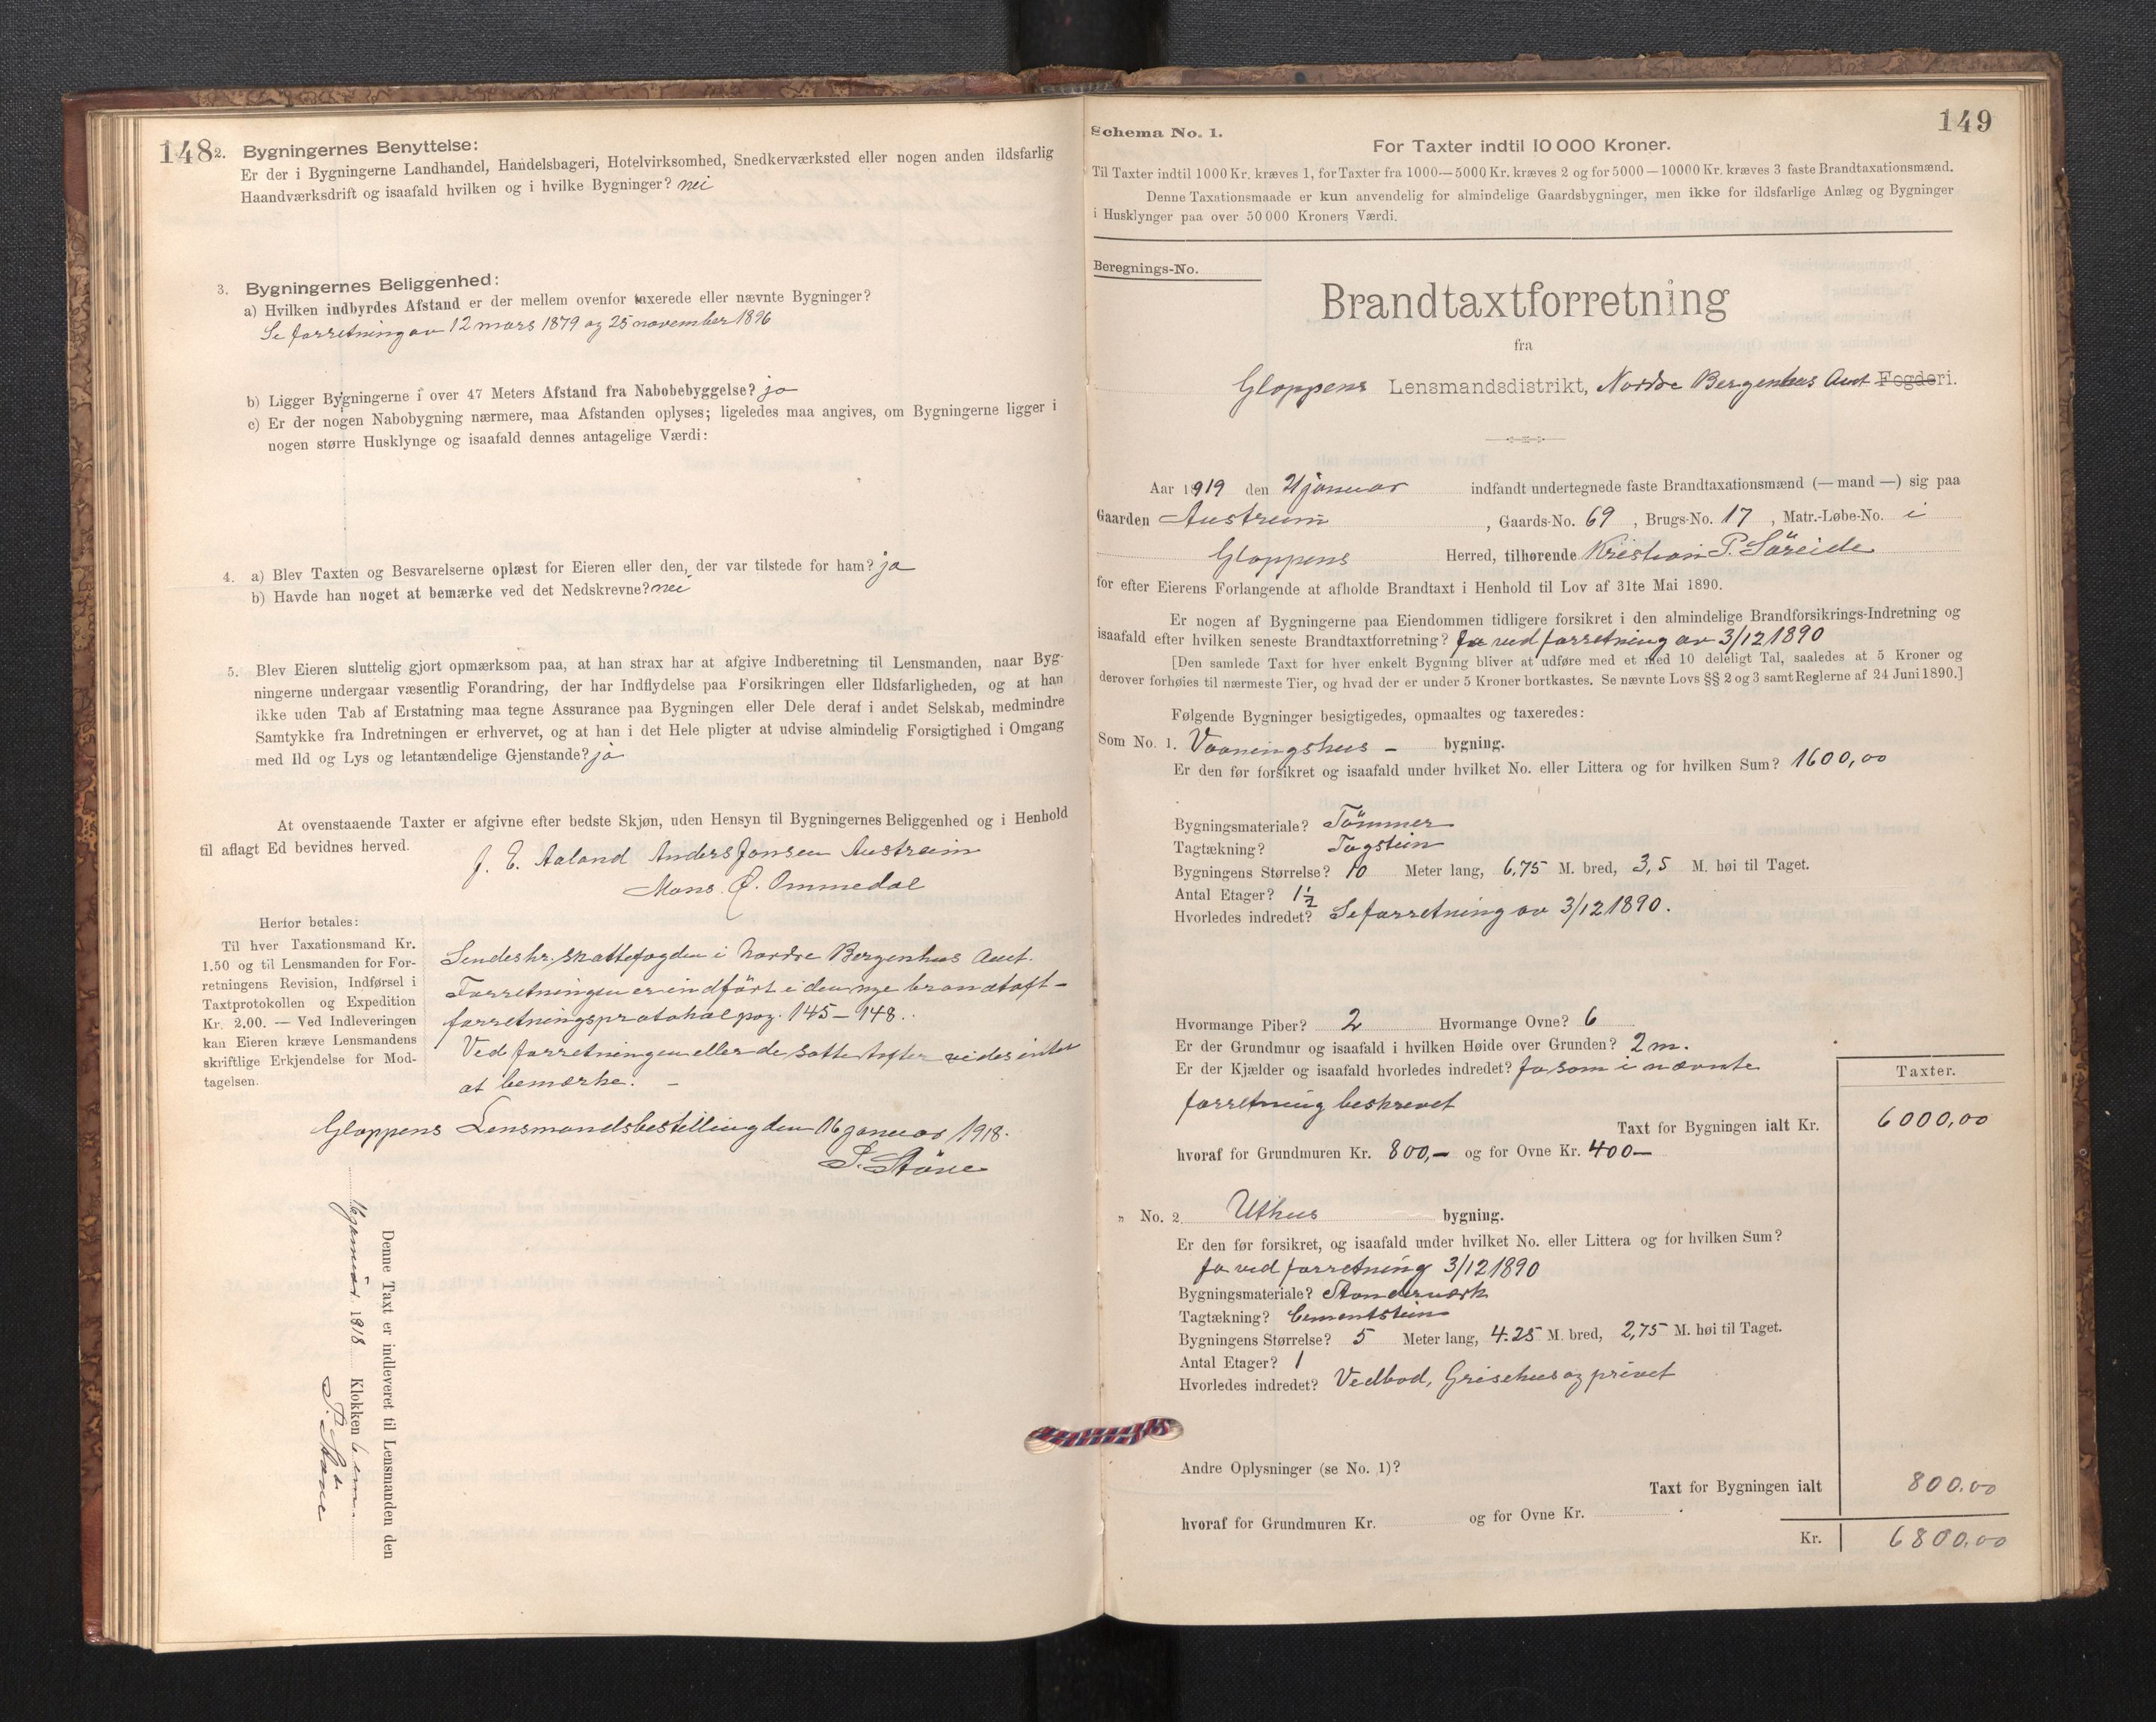 148
2. Bygningernes Benyttelse:
Er der i Bygningerne Landhandel, Handelsbageri, Hotelvirksomhed, Snedkerværksted eller nogen anden ildsfarlig
Haandværksdrift og isaafald hvilken og i hvilke Bygninger? nei
3. Bygningernes Beliggenhed:
a) Hvilken indbyrdes Afstand er der mellem ovenfor taxerede eller nævnte Bygninger?
Se forretning av 12 mars 1879 og 25 november 1896
b) Ligger Bygningerne i over 47 Meters Afstand fra Nabobebyggelse? ja
c) Er der nogen Nabobygning nærmere, maa Afstanden oplyses; ligeledes maa angives, om Bygningerne ligger i
nogen større Husklynge og isaafald dennes antagelige Værdi:
4. a) Blev Taxten og Besvarelserne oplæst for Eieren eller den, der var tilstede for ham? ja
b) Havde han noget at bemærke ved det Nedskrevne? nei
5. Blev Eieren sluttelig gjort opmærksom paa, at han strax har at afgive Indberetning til Lensmanden, naar Byg-
ningerne undergaar væsentlig Forandring, der har Indflydelse paa Forsikringen eller Ildsfarligheden, og at han
ikke uden Tab af Erstatning maa tegne Assurance paa Bygningen eller Dele deraf i andet Selskab, medmindre
Samtykke fra Indretningen er erhvervet, og at han i det Hele pligter at udvise almindelig Forsigtighed i Omgang
med Ild og Lys og letantændelige Gjenstande? ja
At ovenstaaende Taxter er afgivne efter bedste Skjøn, uden Hensyn til Bygningernes Beliggenhed og i Henhold
til aflagt Ed bevidnes herved.
J. E. Aaland Anders Jonsen Austreim
Mons O. Ommedal
Herfor betales:
Til hver Taxationsmand Kr.
1.50 og til Lensmanden for For-
retningens Revision, Indførsel i
Taxtprotokollen og Expedition
Kr. 2.00. — Ved Indleveringen
kan Eieren kræve Lensmandens
skriftlige Erkjendelse for Mod-
tagelsen.
Sendes hr. skattefogden i Nordre Bergenhus Amt.
Forretningen er indført i den nye brandtaft-
forretningsprotokol pag. 145-148.
Ved forretningen eller de satte tafter vides intet
at bemærke. -
Gloppens Lensmandsbestilling den 16 januar 1918.
S. Støve
Denne Taxt er indleveret til Lensmanden den
16 januar 1918 Klokken 6 em.
S. Støve
149
Schema No. 1.
For Taxter indtil 10 000 Kroner.
Til Taxter indtil 1000 Kr. kræves 1, for Taxter fra 1000—5000 Kr. kræves 2 og for 5000—10000 Kr. kræves 3 faste Brandtaxationsmænd.
Denne Taxationsmaade er kun anvendelig for almindelige Gaardsbygninger, men ikke for ildsfarlige Anlæg og Bygninger
i Husklynger paa over 50 000 Kroners Værdi.
Beregnings-No.
Brandtaxtforretning
fra
Gloppens Lensmandsdistrikt, Nordre Bergenhus Amt Fogderi.
Aar 1919 den 21 januar indfandt undertegnede faste Brandtaxationsmænd (— mand —) sig paa
Gaarden Austreim, Gaards-No. 69, Brugs-No. 17, Matr.-Løbe-No. i
Gloppens Herred, tilhørende Kristian P. Søreide
for efter Eierens Forlangende at afholde Brandtaxt i Henhold til Lov af 31te Mai 1890.
Er nogen af Bygningerne paa Eiendommen tidligere forsikret i den almindelige Brandforsikrings-Indretning og
isaafald efter hvilken seneste Brandtaxtforretning? Ja ved forretning av 3/12 1890
[Den samlede Taxt for hver enkelt Bygning bliver at udføre med et med 10 deleligt Tal, saaledes at 5 Kroner og
derover forhøies til nærmeste Tier, og hvad der er under 5 Kroner bortkastes. Se nævnte Lovs §§ 2 og 3 samt Reglerne af 24 Juni 1890.]
Følgende Bygninger besigtigedes, opmaaltes og taxeredes:
Som No. 1. Vaaningshus - bygning.
Er den før forsikret og isaafald under hvilket No. eller Littera og for hvilken Sum? 1600,00
Bygningsmateriale? Tømmer
Tagtækning? Tagstein
Bygningens Størrelse? 10 Meter lang, 6,75 M. bred, 3,5 M. høi til Taget.
Antal Etager? 1½
Hvorledes indredet? Se forretning av 3/12 1890.
Hvormange Piber? 2 Hvormange Ovne? 6
Er der Grundmur og isaafald i hvilken Høide over Grunden? 2 m.
Er der Kjælder og isaafald hvorledes indredet? Ja som i nævnte
Taxter.
forretning beskrevet
Taxt for Bygningen ialt Kr. 6000,00
hvoraf for Grundmuren Kr. 800,- og for Ovne Kr. 400-
„ No. 2. Uthus bygning.
Er den før forsikret, og isaafald under hvilket No. eller Littera og for hvilken Sum?
Ja ved forretning 3/12 1890
Bygningsmateriale? Standerverk
Tagtækning? Cementstein
Bygningens Størrelse? 5 Meter lang, 4.25 M. bred, 2,75 M. høi til Taget.
Antal Etager? 1
Hvorledes indredet? Vedbod, Grisehus og privet
Andre Oplysninger (se No. 1)?
Taxt for Bygningen ialt 800.00
hvoraf for Grundmuren Kr. og for Ovne Kr.
Kr. 6800.00